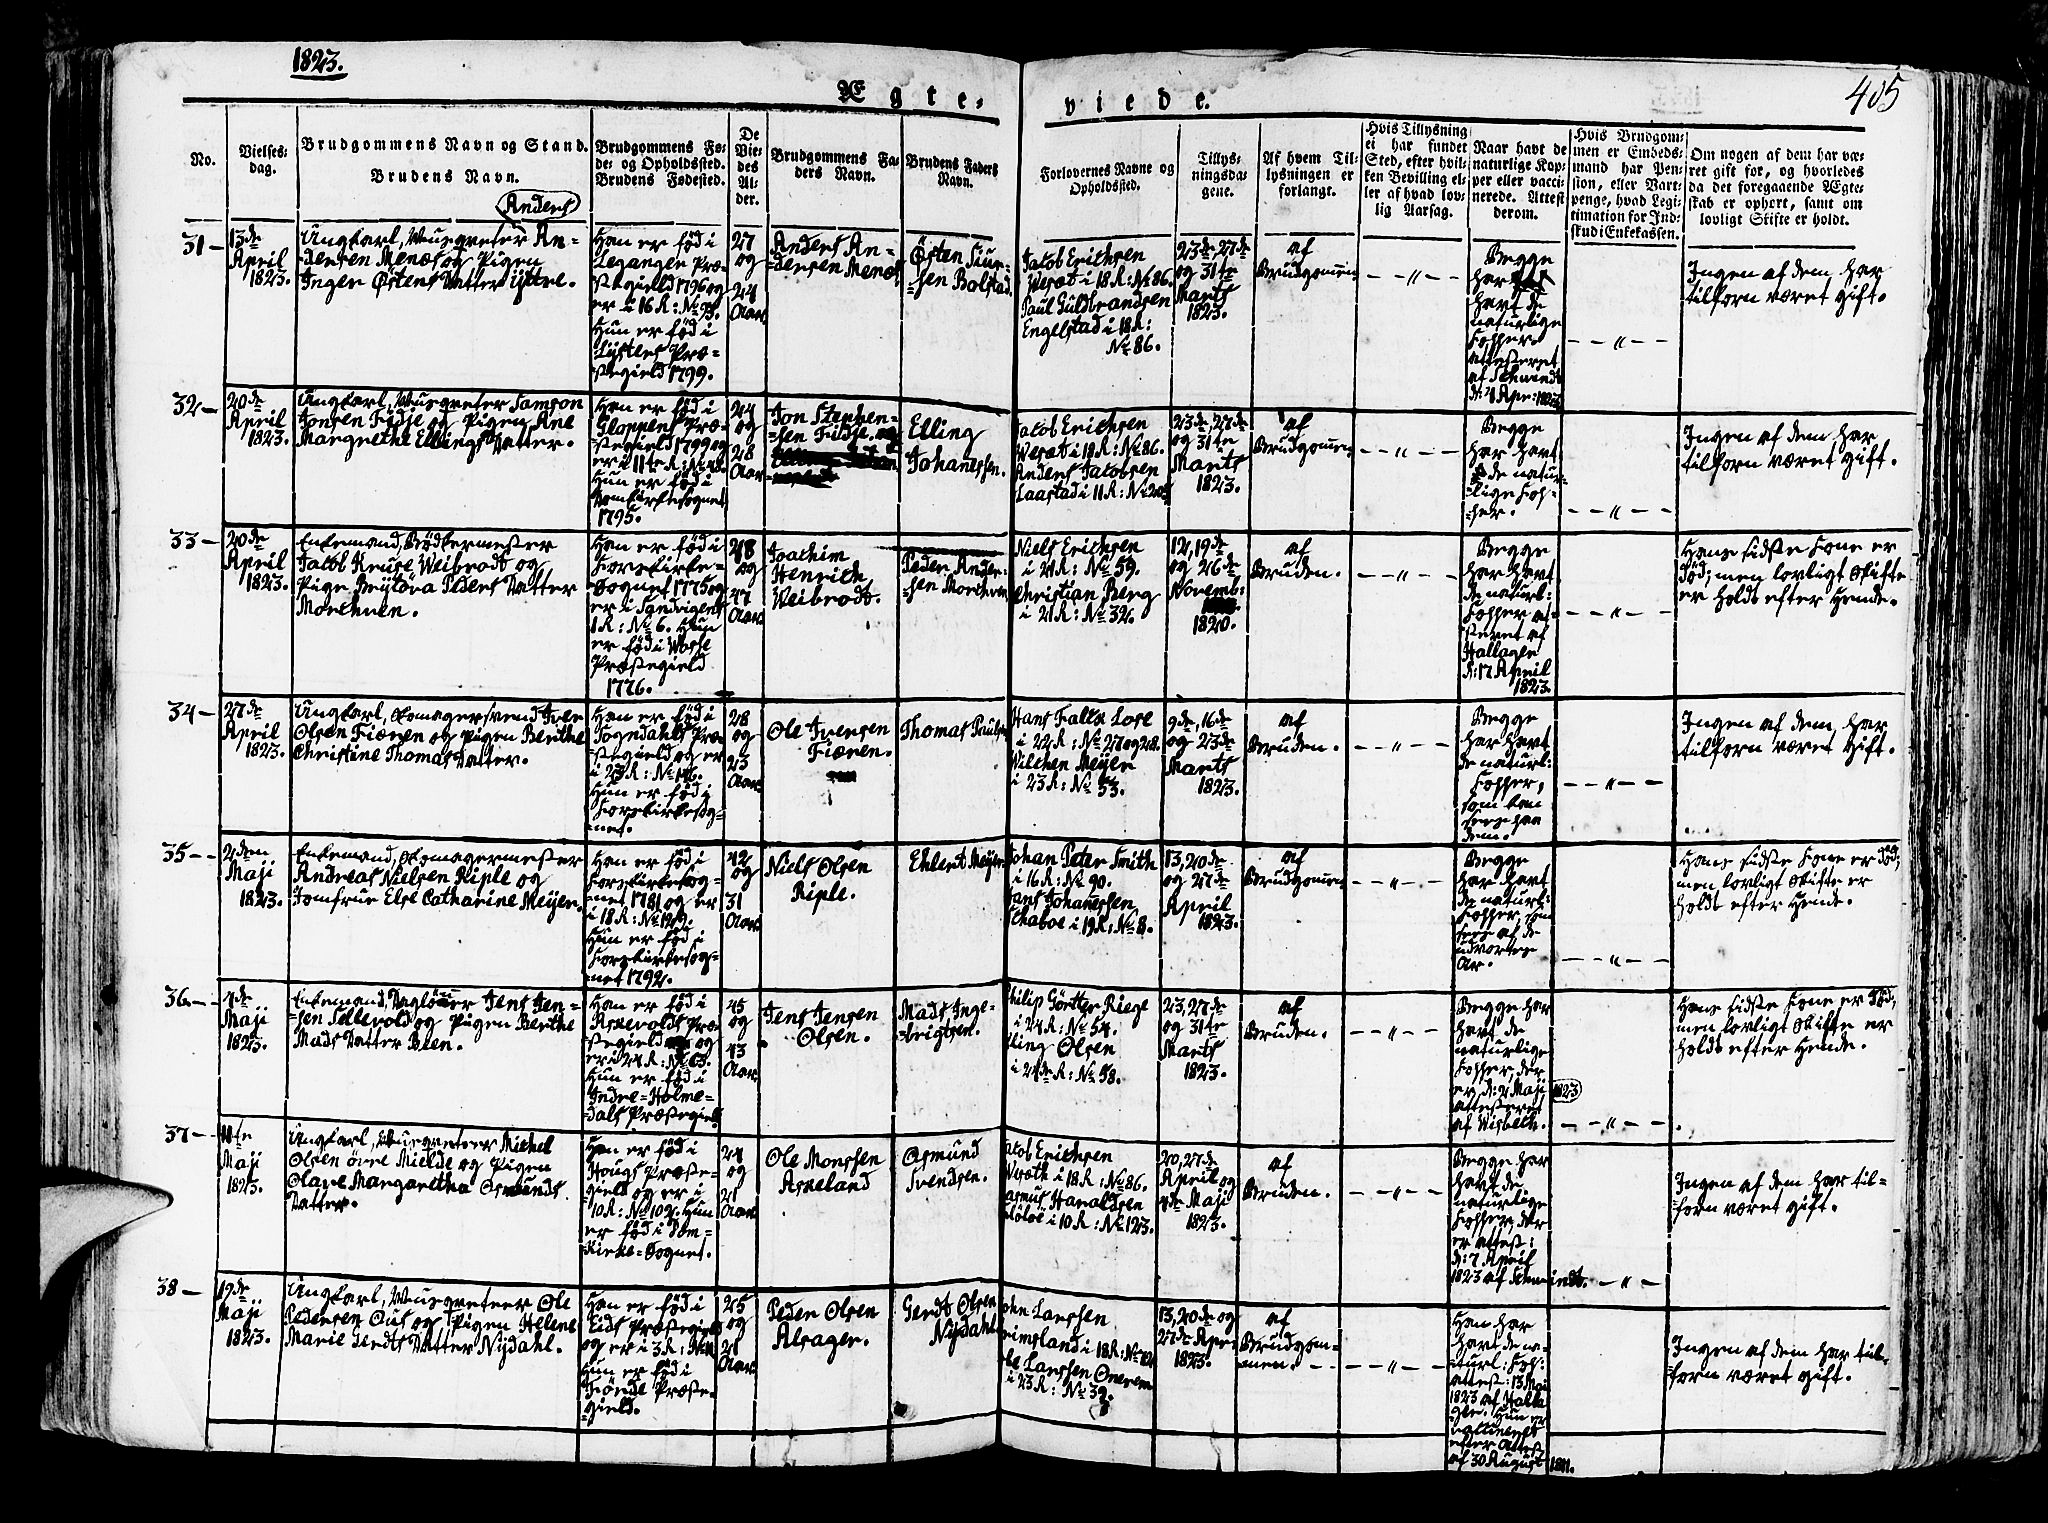 1823.
405
Ægte-
viede.
No.
Vielses-
dag.
Brudgommens Navn og Stand.
Brudens Navn.
Brudgommens Fø-
de- og Opholdssted.
Brudens Fødested.
De
Vie-
des
Al-
der.
Brudgommens Fa-
ders Navn.
Brudens Faders
Navn.
Forlovernes Navne og
Opholdssted.
Tillys-
ningsda-
gene.
Af hvem Til-
lysningen er
forlangt.
Hvis Tillysning
ei har fundet
Sted, efter hvil-
ken Bevilling el-
ler af hvad lov-
lig Aarsag.
Naar havt de
naturlige Kop-
per eller vacci-
nerede. Attest
derom.
Hvis Brudgom-
men er Embeds-
mand har Pen-
sion, eller Vart-
penge, hvad Legi-
timation for Ind-
skud i Enkekassen.
Om nogen af dem har væ-
ret gift før, og hvorledes
da det foregaaende Ægte-
skab er ophørt, samt om
lovligt Skifte er holdt.
31-
13de
April
1823.
Anders
Ungkarl, Huusgreter An-
dersen Menæs og Pigen
Inger Østens Datter Yttre.
Han er fød i
Leganger Præ-
stegield 1796 og
er i 16 R: No 93.
Hun er fød i
Lysters Præ-
stegield 1799.
27
og
24
Aar.
Anders An-
dersen Menæs
Østen Siur-
sen Bolstad.
Jacob Erichsen
Werat i 18 R: No 86.
Paul Guldbrandsen
Engelstad i 18 R:
No 86.
23de, 27de
og 31te
Marts
1823.
af
Brudgommen
Begge
har
havt de
naturlige
Kopper
attesteret
af Schwindt
d: 4 Apr: 1823
Ingen af dem har
tilforn været gift.
32-
20de
April
1823.
Ungkarl, Huusgreter Samson
Jonsen Fidje og Pigen Ane
Margrethe Ellings Datter.
Han er fød i
Gloppens Præ-
stegield 1799 og
er i 11te R:
Hun er fød i
Domkirkesognet
1795.
24
og
28
Aar
Jon Stephen-
sen Fidje, og
Elling
Johanessen.
Jacob Erichsen
Werat i 18 R: No 86.
Anders Jacobsen
Laastad i 11 R:
23de, 27de
og 31te
Marts
1823.
af
Brudgommen
Begge
har havt
de natur-
lige Kop-
per.
Ingen af dem har
tilforn været gift.
33-
20de
April
1823.
Enkemand, Bødkermester
Jacob Kruse Weibrodt og
Pige Brÿtöva Peders Datter
Morehuen.
Han er fød i
Korskirke-
Sognet 1775 og
er i Sandvigens
1 R: No 6. Hun
er fød i Wosse
Præstegield
1776.
48
og
47
Aar.
Joachim
Henrich
Weibrodt.
Peder Ander-
sen Morehuen
Niels Erichsen
i 21 R: No 59.
Christian Berg
i 21 R: No 32.
12, 19de
og 26de
Novemb:
1820.
af
Bruden.
Begge
har havt
de naturl:
Kopper at-
testeret af
Hallager
d: 17 April
1823.
Hans sidste Kone er
død; men lovligt Skifte
er holdt efter Hende.
34-
27de
April
1823.
Ungkarl, Skomagersvend Iver
Olsen Fiæren og Pigen Berthe
Christine Thomas Datter.
Han er fød i
Sogndahls Præ-
stegield og er
i 23 R: No 146.
Hun er fød i
Korskirkesog-
net.
28
og
23
Aar.
Ole Iversen
Fiæren.
Thomas Paulsen
Hans Falck Lose
i 22 R: No 27 og 28.
Wilchen Meyer
i 23 R: No 53.
9de, 16de
og 23de
Marts
1823.
af
Bruden.
Begge
har havt
de naturl:
Kopper,
som kan
sees paa
dem.
Ingen af dem har
tilforn været gift.
35-
2den
Maji
1823.
Enkemand, Skomagermester
Andreas Nielsen Riple og
Jomfrue Else Catharine Meyer.
Han er fød i
Korskirkesog-
net 1781 og er
i 18 R: No 129.
Hun er fød i
Korskirkesog-
net 1792.
42
og
31
Aar.
Niels Olsen
Riple.
Ehlert Meyer
Johan Peter Smith
i 16 R: No 90.
Hans Johanessen
Schaboe i 19 R: No 8.
13, 20de
og 27de
April
1823.
af
Brudgommen
Begge
har havt
de naturl:
Kopper, som
sees af de
udvortes
Ar.
Hans sidste Kone er død;
men lovligt Skifte er
holdt efter Hende.
36-
4de
Maji
1823.
Enkemand, Dagløner Jens Jen-
sen Sellevold og Pigen Berthe
Mads Datter Beén.
Han er fød i
Askevolds Præ-
stegield og
er i 24 R: No 63.
Hun er fød i
Indre-Holme-
dals Præstegield.
45
og
43
Aar.
Jens Jensen
Olsen.
Mads Inge-
brigtsen.
Philip Görtter Riege
i 24 R: No 54.
Elling Olsen
i 24de R: No 58.
23, 27de
og 31te
Marts
1823.
af
Bruden.
Begge har
havt de
naturlige
Kopper, der
er d: 2 Maji 1823
attesteret
af Wisbech.
Hans sidste Kone er død;
men lovligt Skifte er
holdt efter Hende.
37-
11te
Maji
1823.
Ungkarl, Huusgreter Michel
Olsen övre Mielde og Pigen
Olave Margaretha Osmunds
Datter.
Han er fød i
Hougs Præste-
gield og er i
10 R: No 102. Hun
er fød i Dom-
Kirke-Sognet.
24
og
21
Aar.
Ole Monssen
Askeland
Osmund
Svendsen.
Jacob Erichsen
Werath i 18 R: No 86.
Rasmus Haraldsen
i 10 R: No 123.
20, 27de
April og
4de Maji
1823.
af
Bruden.
Begge har
havt de
naturlige
Kopper, der
er attest:
d: 7 April
1823 af Schwindt.
Ingen af dem har til-
forn været gift.
38-
19de
Maji
1823.
Ungkarl, Huusgreteer Ole
Pedersen Ous og Pigen Helene
Marie Gerdts Datter Nÿdahl.
Han er fød i
Eids Præstegield
og er i 3 R:
Hun er fød i
Fiørde Præste-
gield.
25
og
21
Aar.
Peder Olsen
Alsager.
Gerdt Olsen
Nÿdahl
John Larssen
Grimsland i 18 R:
Ole Larssen Oneren
i 23 R: No 39.
13, 20de og
27de Apri-
1823.
af
Brudgom-
men.
Han har
havt de na-
turl: Kop:
attest: 13 Maj
1823 af Halla-
ger. Hun er
vaccineret
efter Attest
af 30 August 1811.
Ingen af dem har til-
forn været gift.